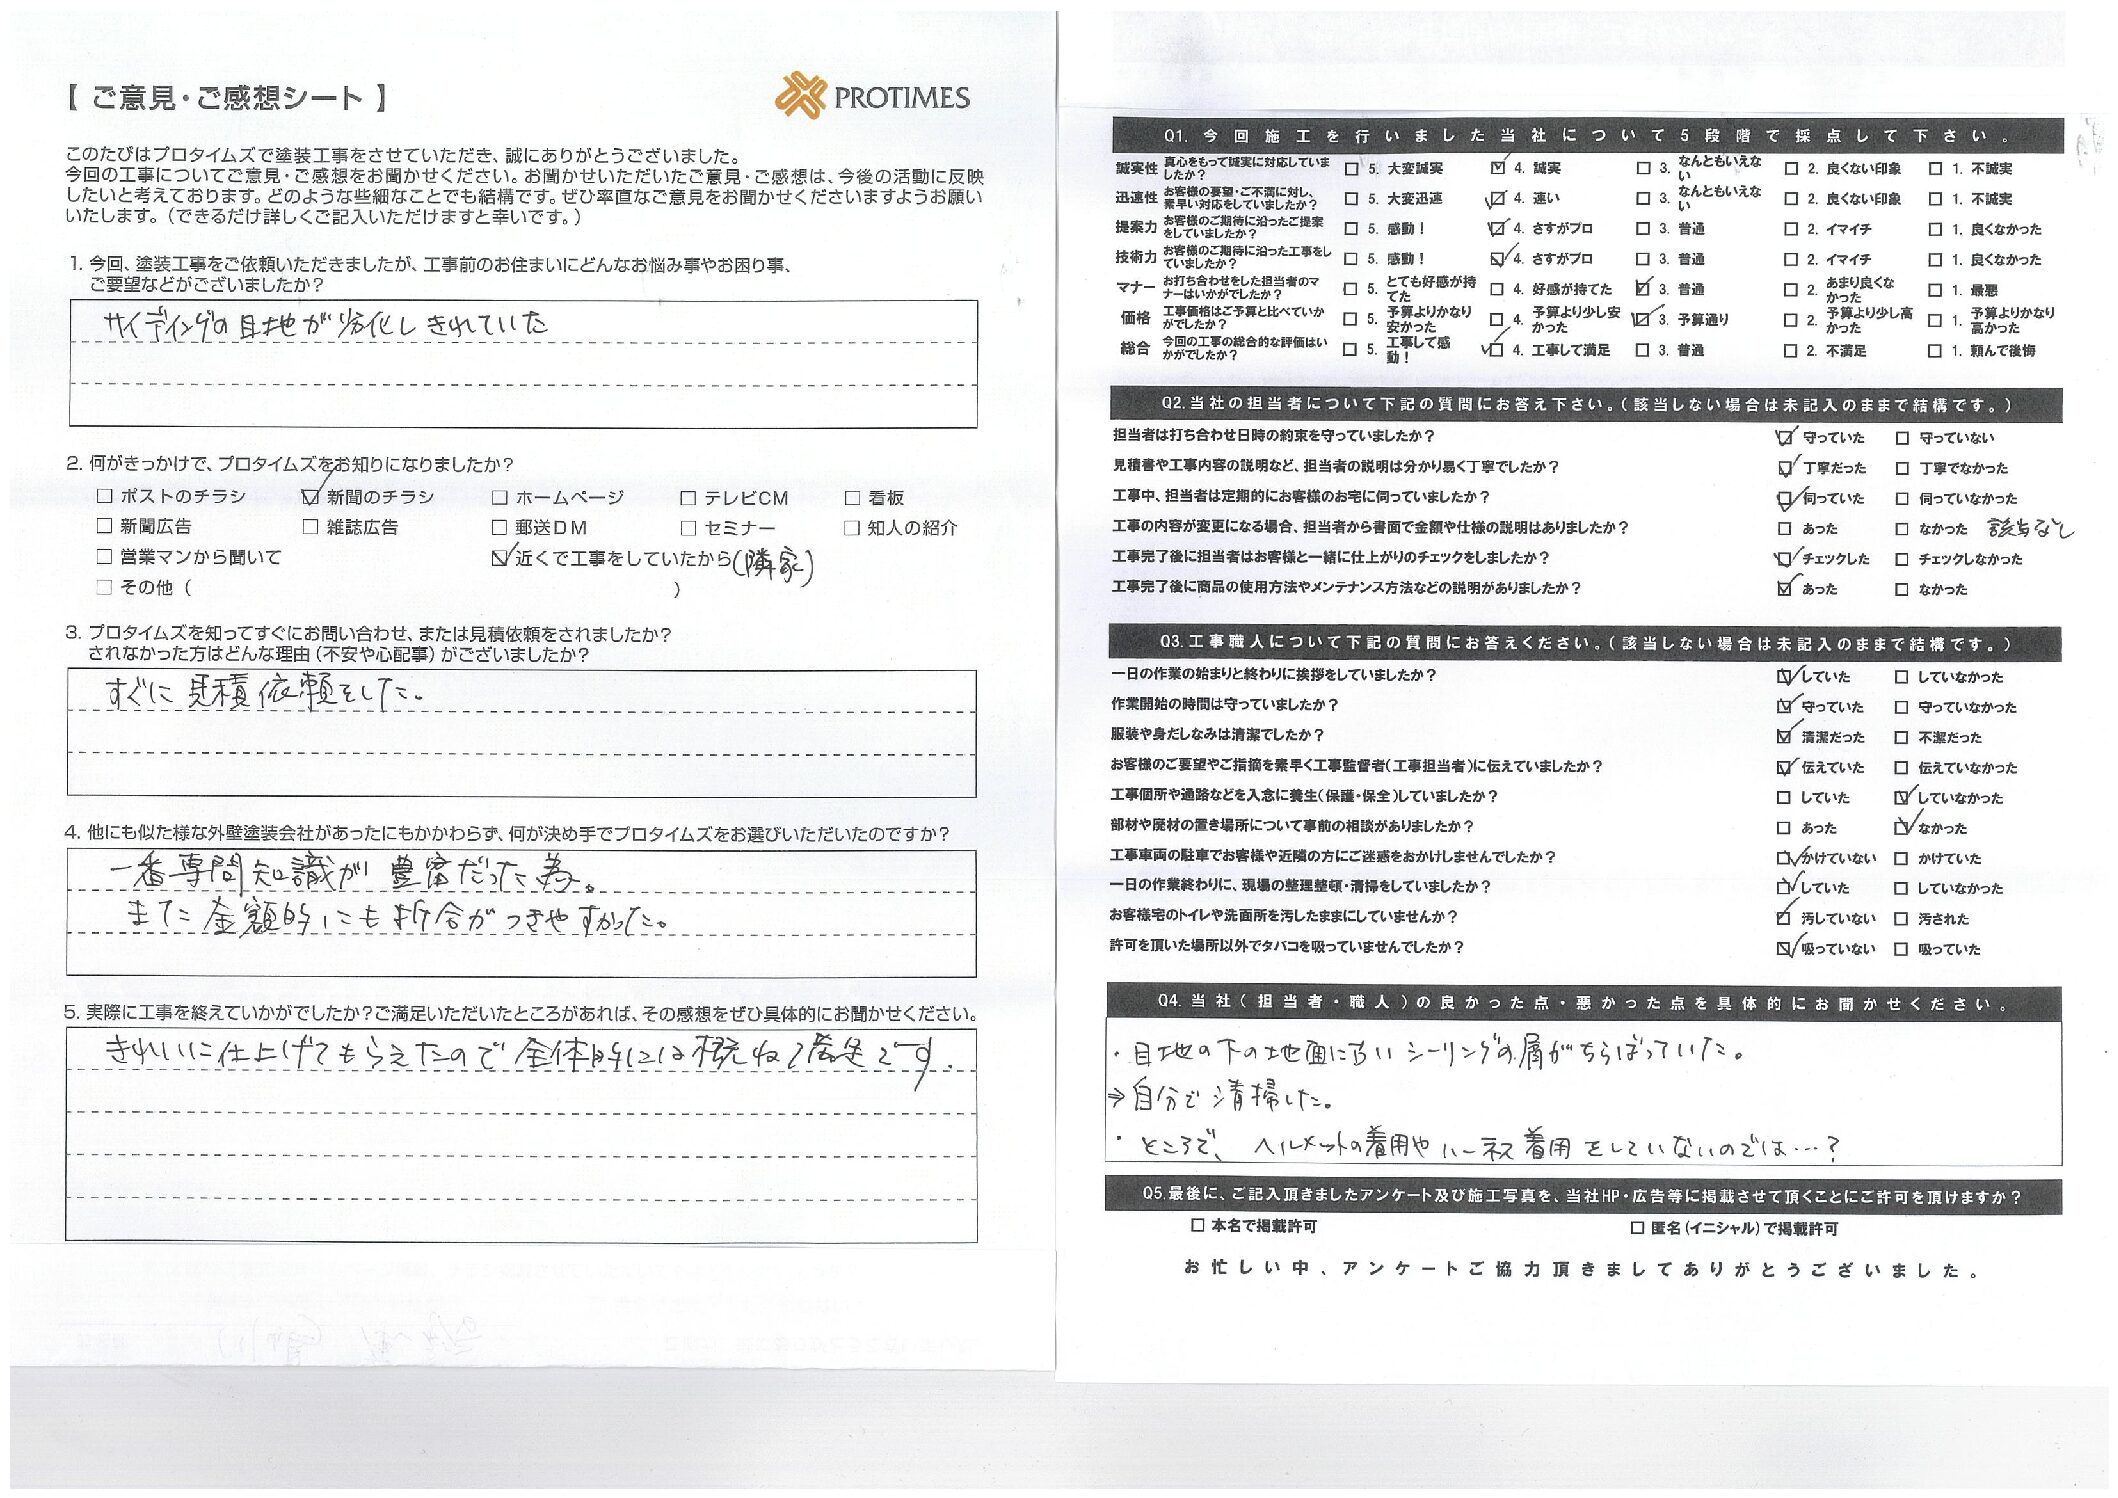 【 ご意見・ご感想シート 】
PROTIMES
このたびはプロタイムズで塗装工事をさせていただき、誠にありがとうございました。
今回の工事についてご意見・ご感想をお聞かせください。お聞かせいただいたご意見・ご感想は、今後の活動に反映
したいと考えております。どのような些細なことでも結構です。ぜひ率直なご意見をお聞かせくださいますようお願い
いたします。（できるだけ詳しくご記入いただけますと幸いです。）
1. 今回、塗装工事をご依頼いただきましたが、工事前のお住まいにどんなお悩み事やお困り事、
ご要望などがございましたか？
サイディングの目地が劣化しきれていた
2. 何がきっかけで、プロタイムズをお知りになりましたか？
□ ポストのチラシ ☑ 新聞のチラシ □ ホームページ □ テレビCM □ 看板
□ 新聞広告 □ 雑誌広告 □ 郵送DM □ セミナー □ 知人の紹介
□ 営業マンから聞いて ☑ 近くで工事をしていたから(隣家)
□ その他（ ）
3. プロタイムズを知ってすぐにお問い合わせ、または見積依頼をされましたか？
されなかった方はどんな理由（不安や心配事）がございましたか？
すぐに見積依頼をした。
4. 他にも似た様な外壁塗装会社があったにもかかわらず、何が決め手でプロタイムズをお選びいただいたのですか？
一番専門知識が豊富だった為。
また金額的にも折合がつきやすかった。
5. 実際に工事を終えていかがでしたか？ご満足いただいたところがあれば、その感想をぜひ具体的にお聞かせください。
きれいに仕上げてもらえたので全体的には概ね満足です.
Q1.今回施工を行いました当社について5段階で採点して下さい。
誠実性 真心をもって誠実に対応していましたか？ □ 5. 大変誠実 ☑ 4. 誠実 □ 3. なんともいえない □ 2. 良くない印象 □ 1. 不誠実
迅速性 お客様の要望・ご不満に対し、素早い対応をしていましたか？ □ 5. 大変迅速 ☑ 4. 速い □ 3. なんともいえない □ 2. 良くない印象 □ 1. 不誠実
提案力 お客様のご期待に沿ったご提案をしていましたか？ □ 5. 感動！ ☑ 4. さすがプロ □ 3. 普通 □ 2. イマイチ □ 1. 良くなかった
技術力 お客様のご期待に沿った工事をしていましたか？ □ 5. 感動！ ☑ 4. さすがプロ □ 3. 普通 □ 2. イマイチ □ 1. 良くなかった
マナー お打ち合わせをした担当者のマナーはいかがでしたか？ □ 5. とても好感が持てた □ 4. 好感が持てた ☑ 3. 普通 □ 2. あまり良くなかった □ 1. 最悪
価格 工事価格はご予算と比べていかがでしたか？ □ 5. 予算よりかなり安かった □ 4. 予算より少し安かった ☑ 3. 予算通り □ 2. 予算より少し高かった □ 1. 予算よりかなり高かった
総合 今回の工事の総合的な評価はいかがでしたか？ □ 5. 工事して感動！ ☑ 4. 工事して満足 □ 3. 普通 □ 2. 不満足 □ 1. 頼んで後悔
Q2.当社の担当者について下記の質問にお答え下さい。（該当しない場合は未記入のままで結構です。）
担当者は打ち合わせ日時の約束を守っていましたか？ ☑ 守っていた □ 守っていない
見積書や工事内容の説明など、担当者の説明は分かり易く丁寧でしたか？ ☑ 丁寧だった □ 丁寧でなかった
工事中、担当者は定期的にお客様のお宅に伺っていましたか？ ☑ 伺っていた □ 伺っていなかった
工事の内容が変更になる場合、担当者から書面で金額や仕様の説明はありましたか？ □ あった □ なかった 該当なし
工事完了後に担当者はお客様と一緒に仕上がりのチェックをしましたか？ ☑ チェックした □ チェックしなかった
工事完了後に商品の使用方法やメンテナンス方法などの説明がありましたか？ ☑ あった □ なかった
Q3.工事職人について下記の質問にお答えください。（該当しない場合は未記入のままで結構です。）
一日の作業の始まりと終わりに挨拶をしていましたか？ ☑ していた □ していなかった
作業開始の時間は守っていましたか？ ☑ 守っていた □ 守っていなかった
服装や身だしなみは清潔でしたか？ ☑ 清潔だった □ 不潔だった
お客様のご要望やご指摘を素早く工事監督者（工事担当者）に伝えていましたか？ ☑ 伝えていた □ 伝えていなかった
工事個所や通路などを入念に養生（保護・保全）していましたか？ □ していた ☑ していなかった
部材や廃材の置き場所について事前の相談がありましたか？ □ あった ☑ なかった
工事車両の駐車でお客様や近隣の方にご迷惑をおかけしませんでしたか？ ☑ かけていない □ かけていた
一日の作業終わりに、現場の整理整頓・清掃をしていましたか？ ☑ していた □ していなかった
お客様宅のトイレや洗面所を汚したままにしていませんか？ ☑ 汚していない □ 汚された
許可を頂いた場所以外でタバコを吸っていませんでしたか？ ☑ 吸っていない □ 吸っていた
Q4.当社（担当者・職人）の良かった点・悪かった点を具体的にお聞かせください。
・目地の下の地面に古いシーリングの屑がちらばっていた。
⇒自分で清掃した。
・ところで、ヘルメットの着用やハーネス着用をしていないのでは…？
Q5.最後に、ご記入頂きましたアンケート及び施工写真を、当社HP・広告等に掲載させて頂くことにご許可を頂けますか？
□ 本名で掲載許可 □ 匿名（イニシャル）で掲載許可
お忙しい中、アンケートご協力頂きましてありがとうございました。